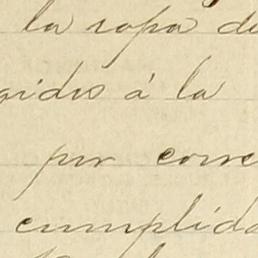 la ropa de
gidos á la
por corre
cumplida